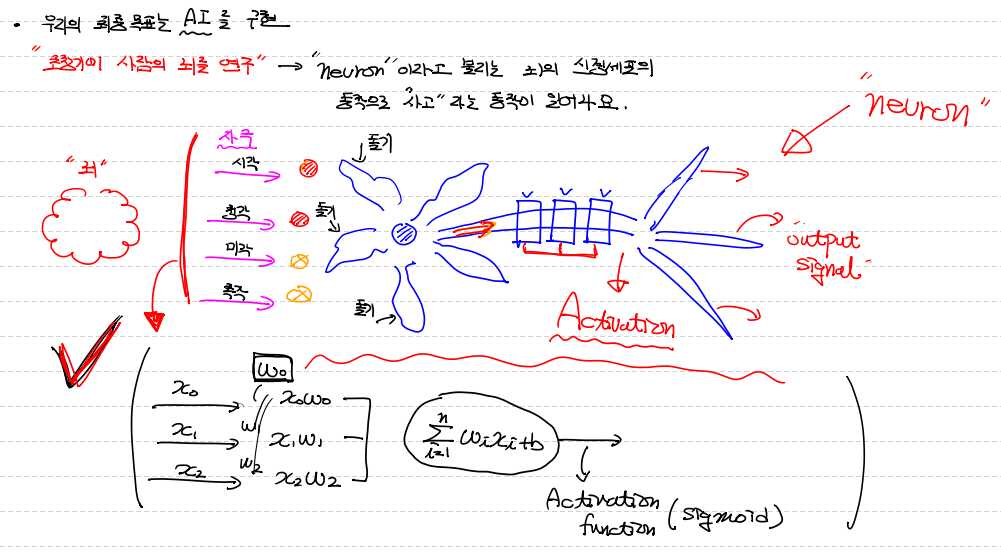 • 우리의 최종목표는 AI를 구현
"굉장히 사람의 뇌를 연구" → "neuron"이라고 불리는 뇌의 신경세포의
동작으로 "사고"라는 동작이 일어나요.
"neuron"
"뇌"
자극
시각
청각
미각
촉각
돌기
돌기
돌기
"output
signal"
Activation
w₀
x₀
x₁
x₂
w₁
w₂
x₀w₀
x₁w₁
x₂w₂
n
∑ wᵢxᵢ+b
i=1
Activation
function (sigmoid)